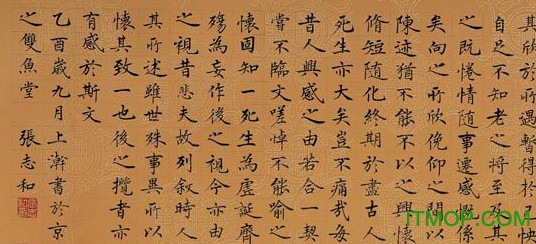 其欣於所遇暫得於己怏
自足不知老之將至及其
之既惓情隨事遷感慨係
矣向之所欣俛仰之間以
陳迹猶不能不以之興懷
脩短隨化終期於盡古人
死生亦大矣豈不痛哉每
昔人興感之由若合一契
嘗不臨文嗟悼不能喻之
懷固知一死生為虛誕齊
殤為妄作後之視今亦由
之視昔悲夫故列敘時人
其所述雖世殊事異所以
懷其致一也後之攬者亦
有感於斯文
乙酉歲九月上澣書於京
之雙魚堂 張志和
ITMOP.com